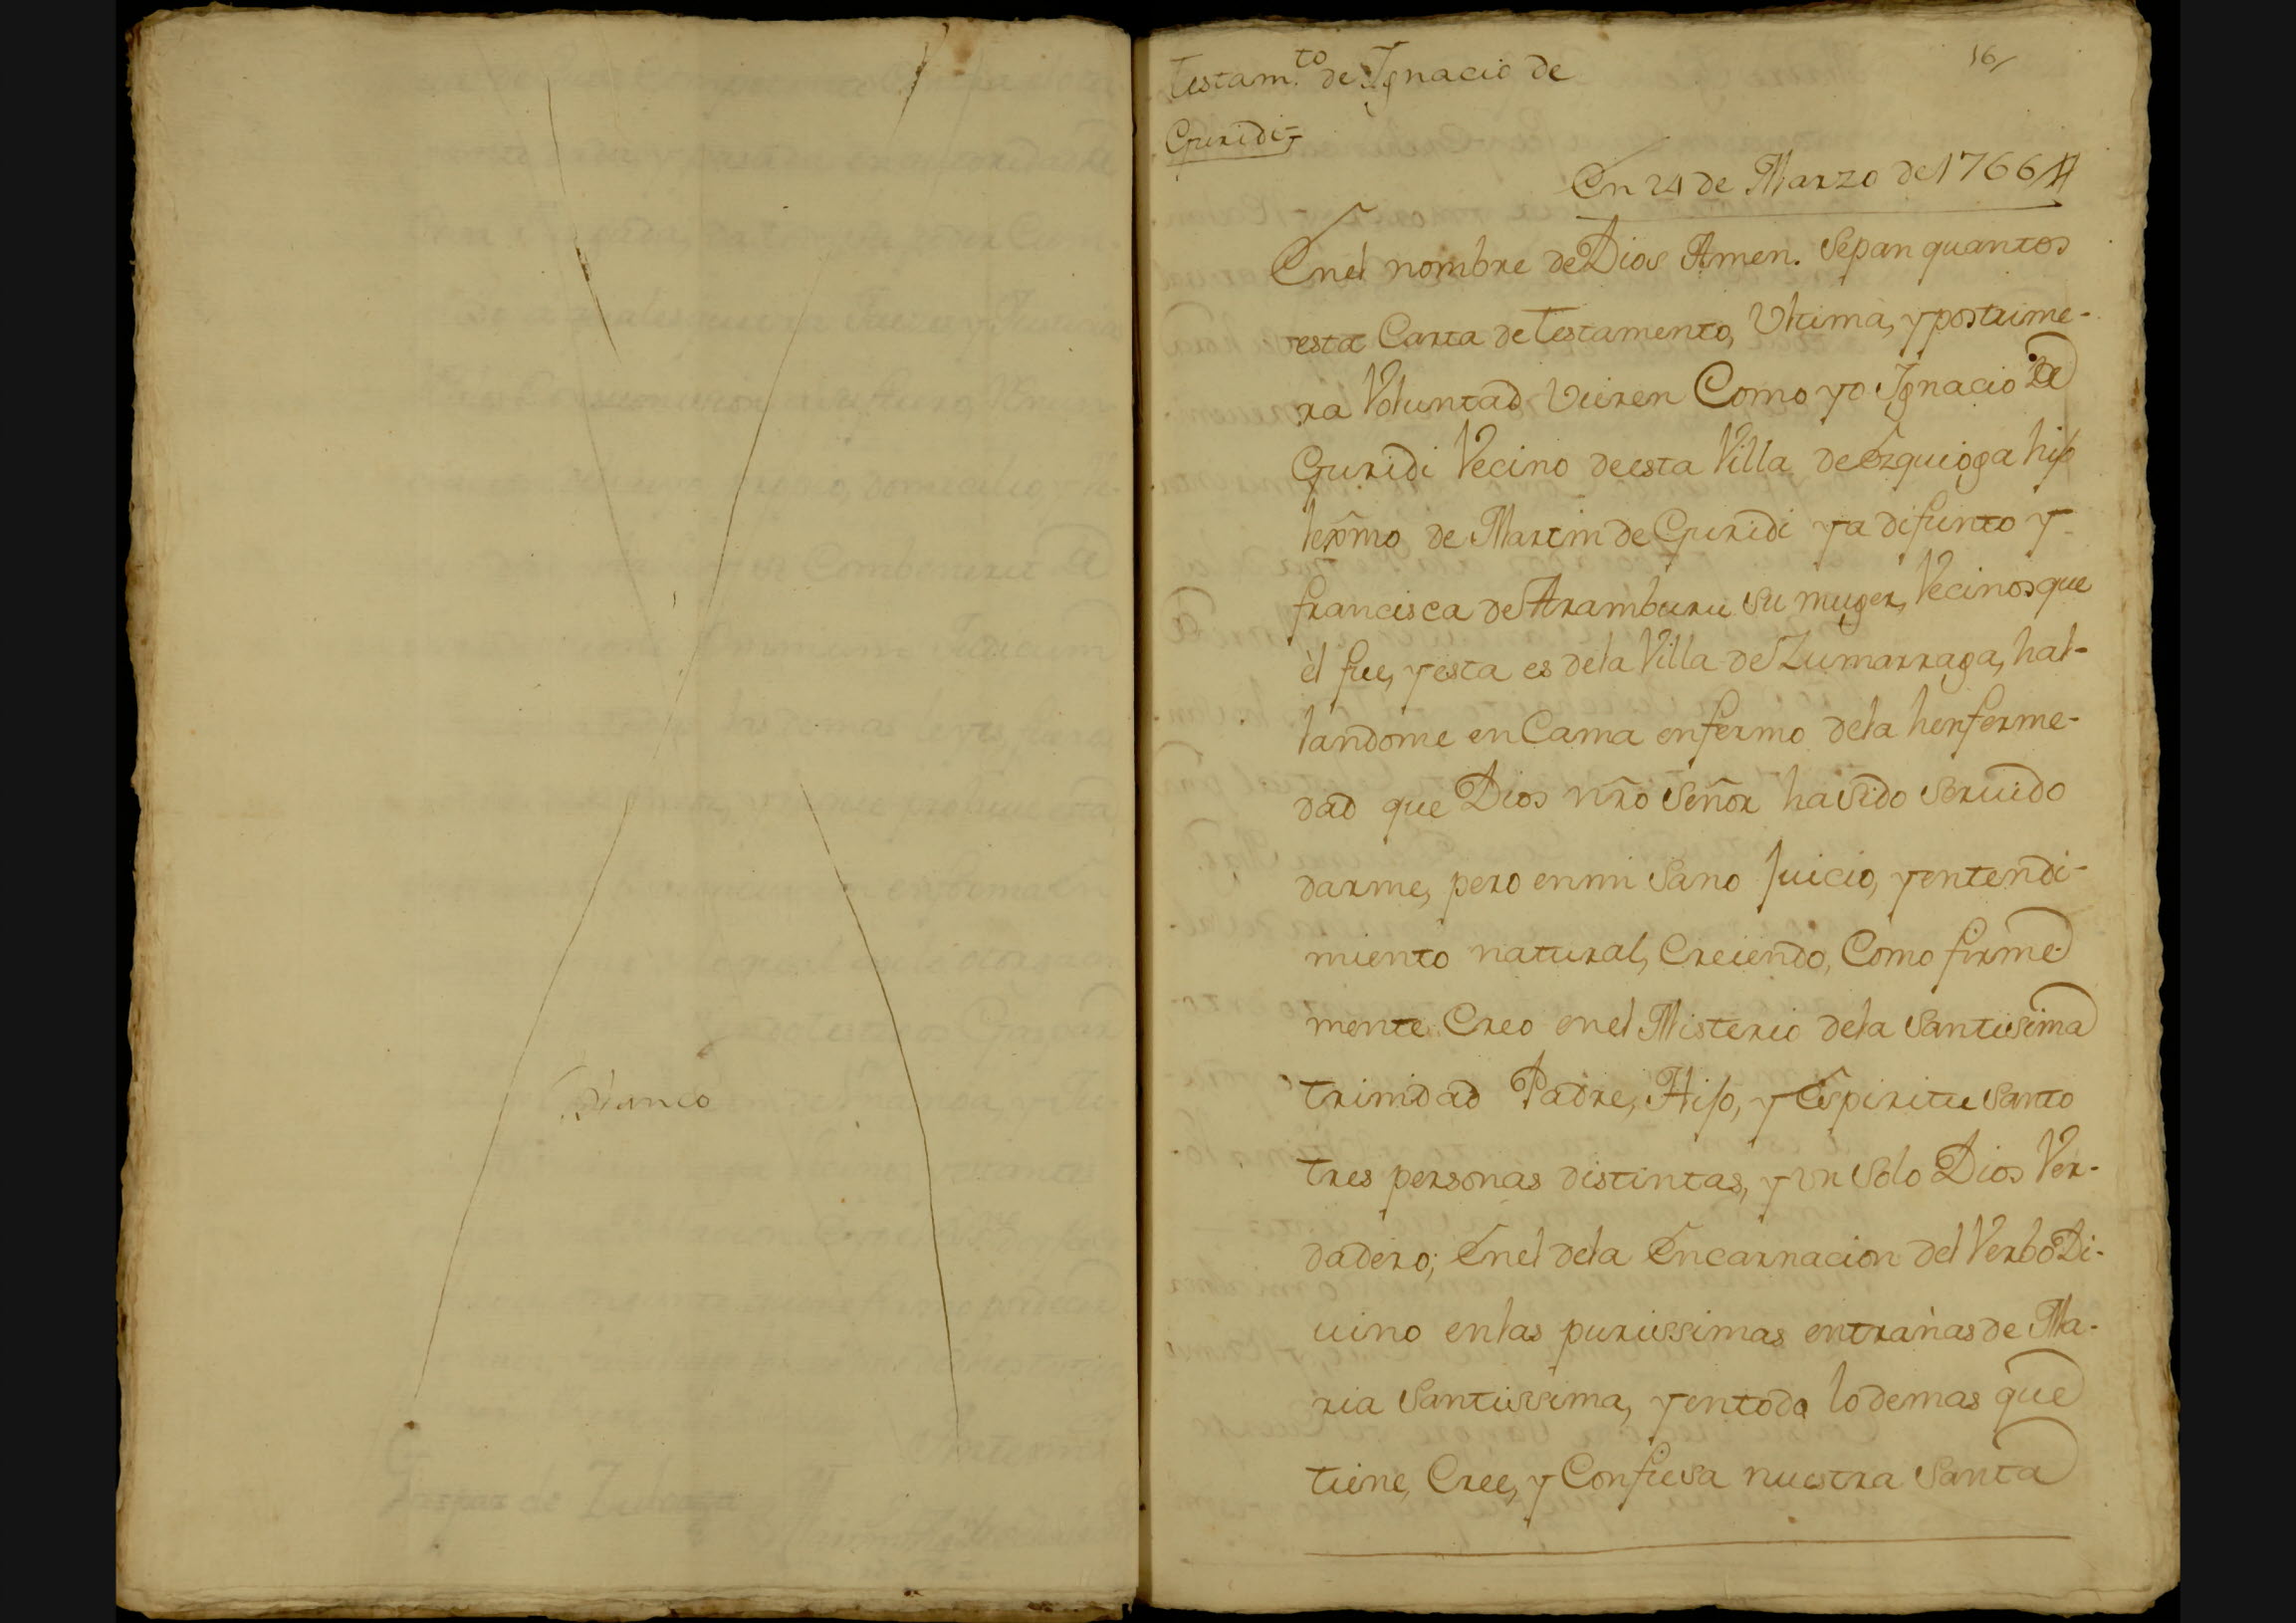 Blanco
16
Testam.to de Ignacio de
Guridi
En 24 de Marzo de 1766
Enel nombre de Dios Amen. Sepan quantos
esta Carta de testamento, Vltima, y postrime-
ra Voluntad Vieren Como yo Ignacio de
Guridi Vecino de esta Villa de Ezquioga hijo
lexmo de Martin de Guridi ya difunto y
francisca de Aramburu su muger, Vecinos que
èl fue, y esta es dela Villa de Zumarraga, hal-
landome en Cama enfermo dela henferme-
dad que Dios nrõ Señor ha sido seruido
darme, pero en mi sano Juicio, y entendi-
miento natural, Creiendo, Como firme-
mente Creo enel Misterio dela Santissima
trinidad Padre, Hijo, y Espiritu Santo
tres personas distintas, y vn solo Dios Ver-
dadero; Enel dela Encarnacion del Verbo Di-
uino enlas purissimas entrañas de Ma-
ria Santissima, y entodo lodemas que
tiene, Cree, y Confiesa nuestra Santa